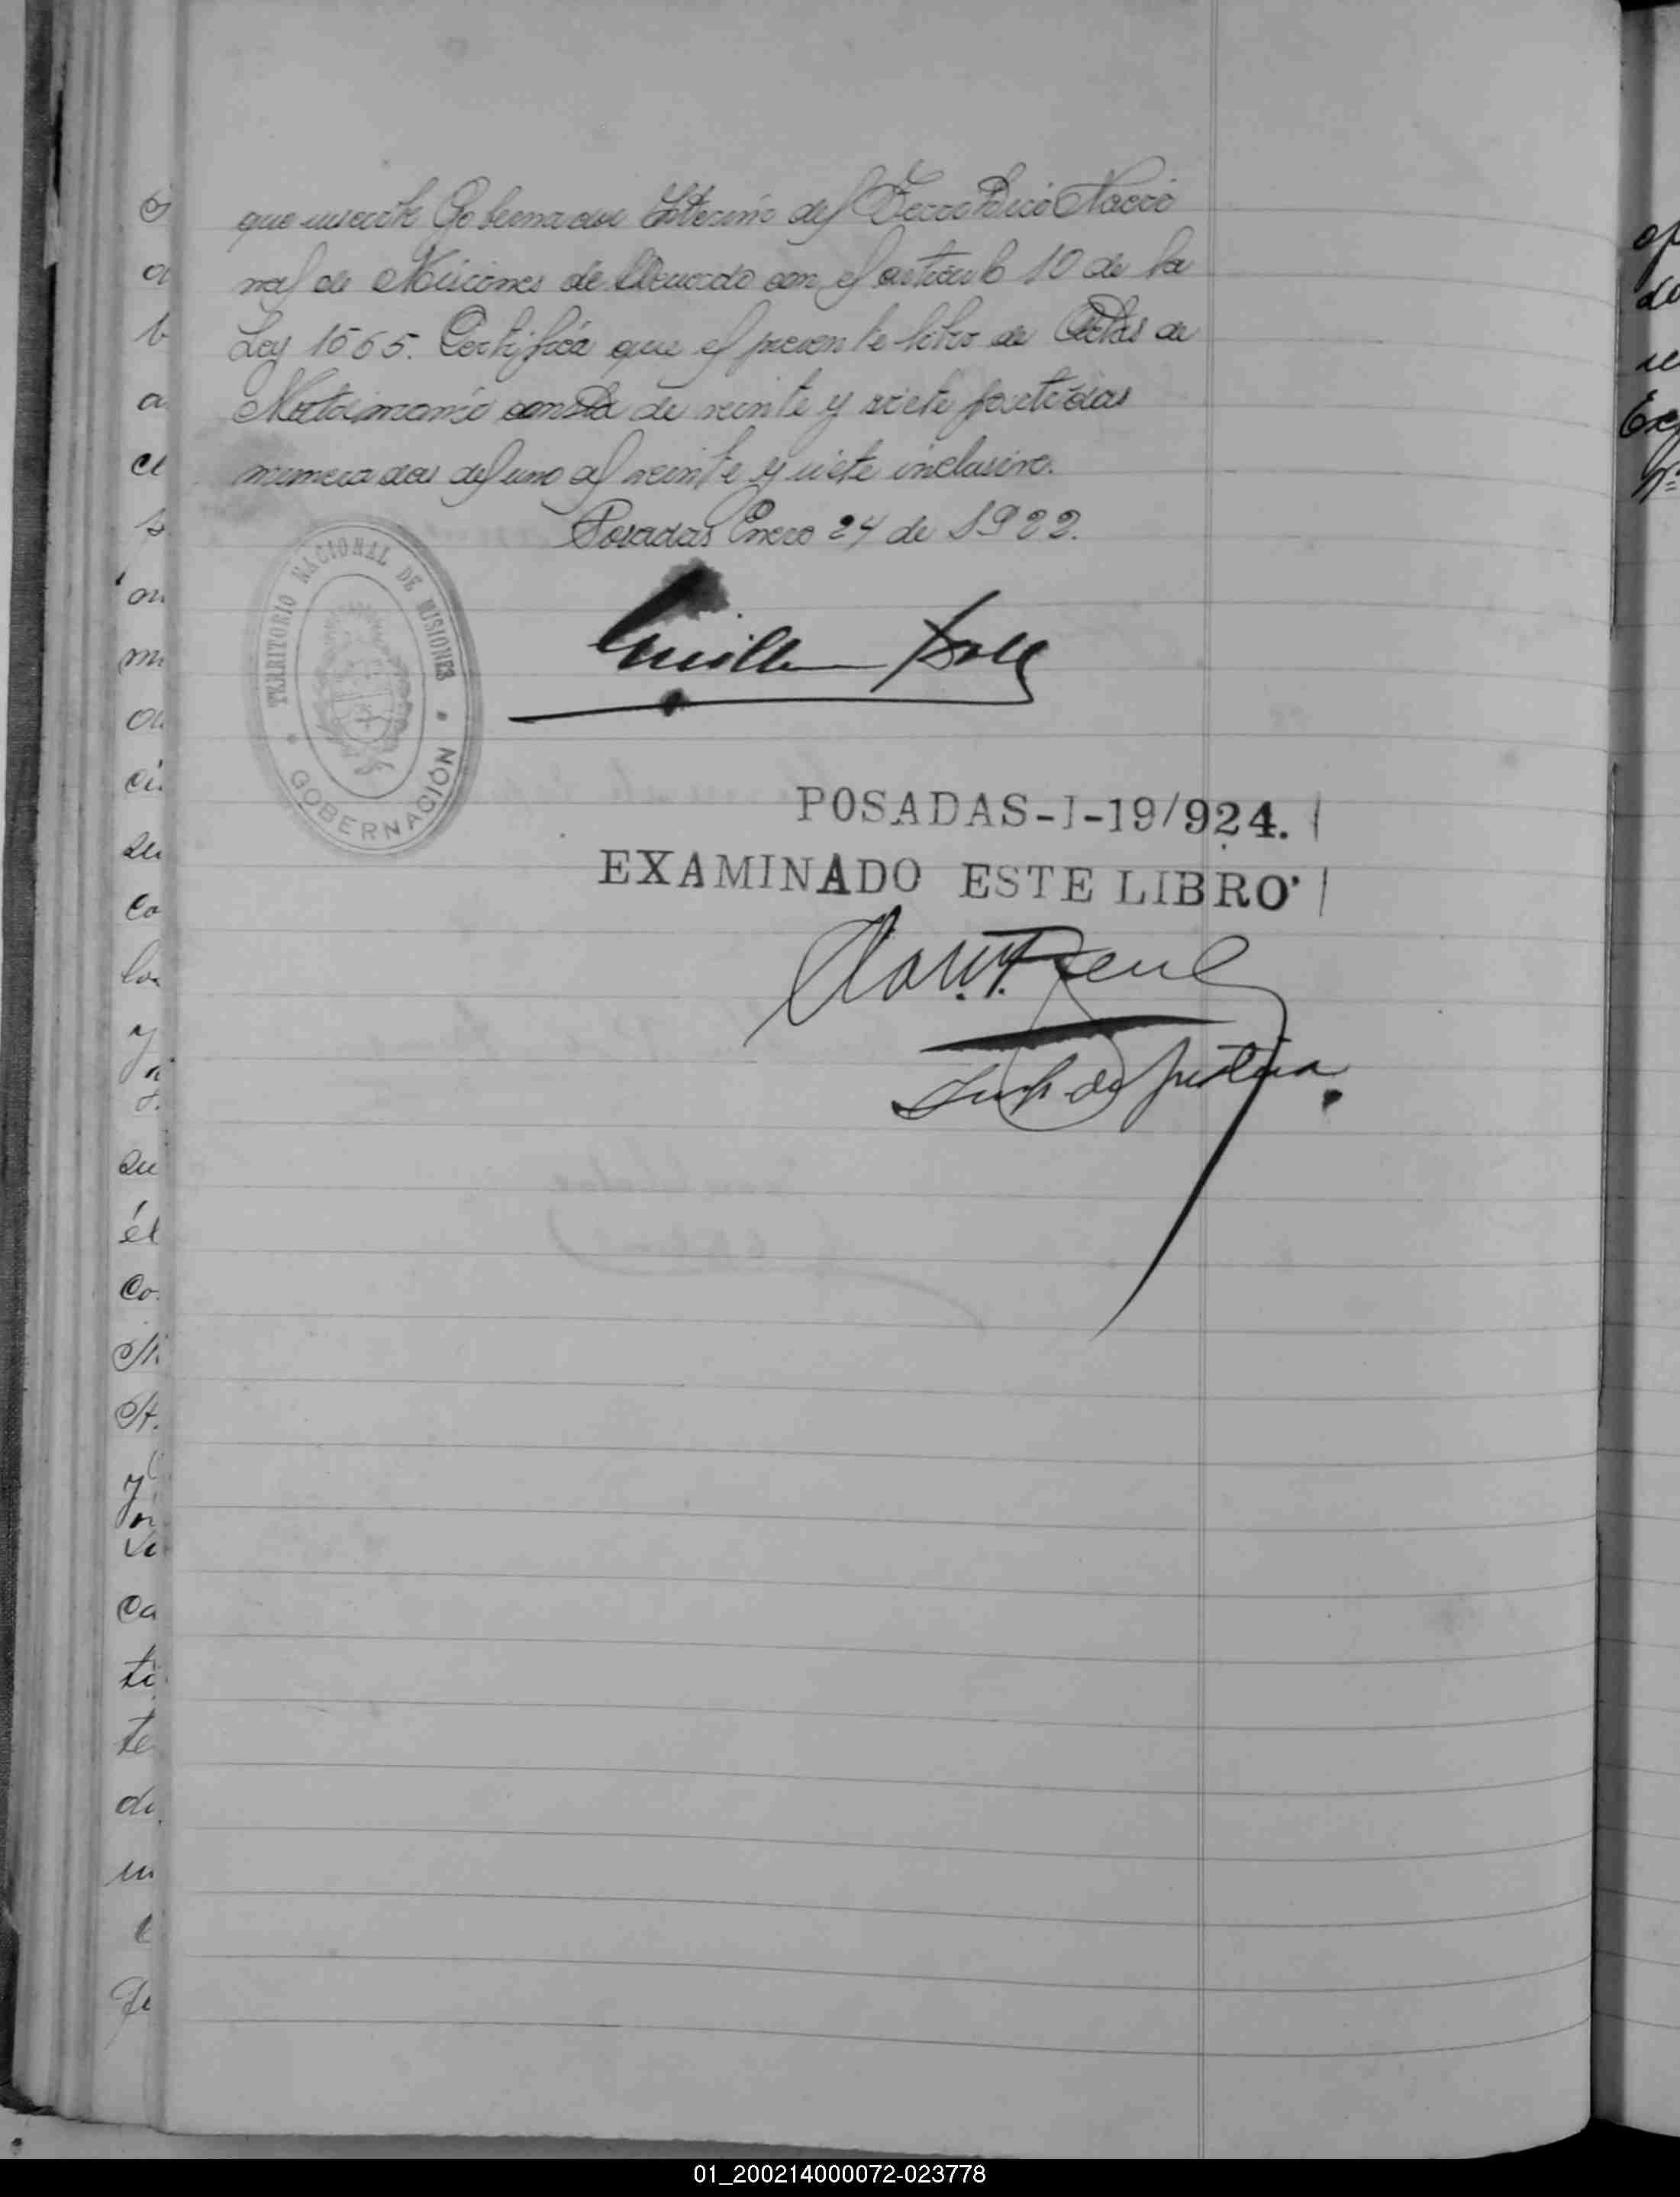 que suscribe Gobernador Interino del Territorio Nacio
nal de Misiones de Acuerdo con el artículo 10 de la
Ley 1565. Certifica que el presente libro de Actas de
Matrimonio consta de veinte y siete partidas
numeradas del uno al veinte y siete inclusive.
Posadas Enero 24 de 1922.
TERRITORIO NACIONAL DE MISIONES
GOBERNACIÓN
Guillermo Doll
POSADAS-I-19/924.
EXAMINADO ESTE LIBRO
de Justicia
01_200214000072-023778